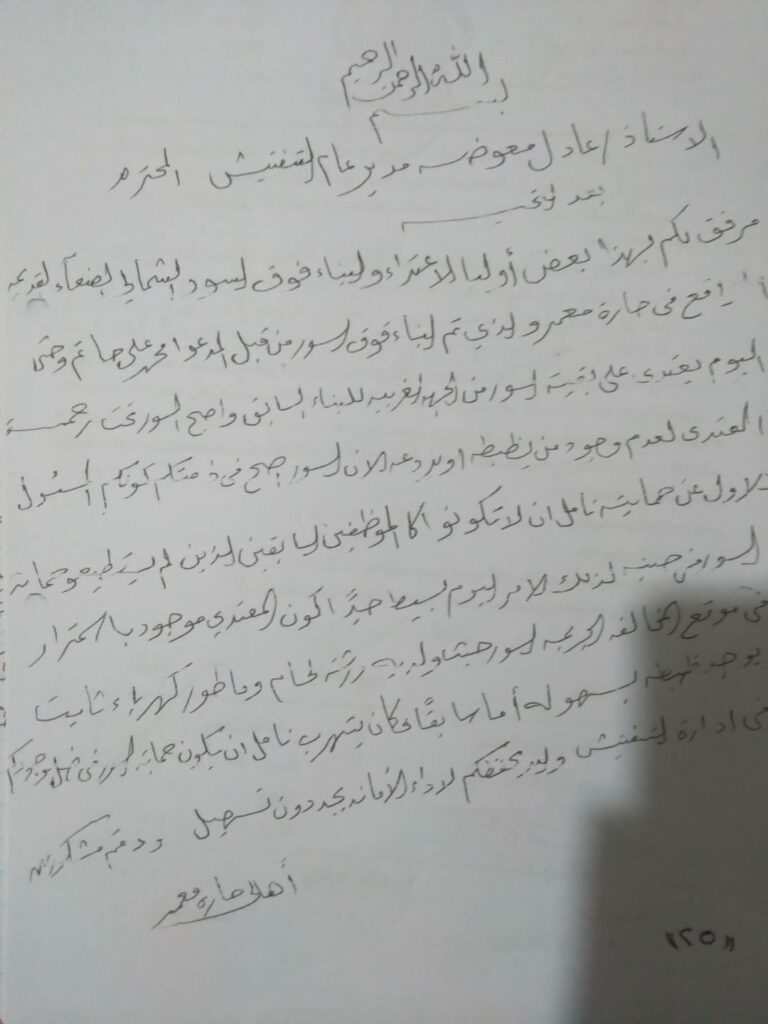 بسم الله الرحمن الرحيم
الاستاذ / عادل معوضه مدير عام التفتيش المحترم
بعد التحيه
مرفق لكم بهذا بعض أوليا الاعتداء والبناء فوق السور الشمالي لصنعاء القديمه
الواقع في حارة معمر والذي تم البناء فوق السور من قبل المدعوا محمد علي حاتم وحتى
اليوم يعتدي على بقية السور من الجهه الغربيه للبناء السابق واصبح السور تحت رحمة
المعتدي لعدم وجود من يضبطه او يردعه الان السور اصبح في ذمتكم كونكم المسئول
الاول عن حمايته نامل ان لا تكونوا كالموظفين السابقين الذين لم يستطيعو حماية
السور في حينه لذلك الامر اليوم بسيط جداً كون المعتدي موجود باستمرار
في موقع المخالفه السور حيث ولديه ورشة لحام وماطور كهرباء ثابت
يوجد بسهوله أما سابقاً فكان يتهرب نامل ان يكون حماية السور في ظل وجودكم
في ادارة التفتيش والله يحفظكم لاداء الأمانه بجد دون تسهيل ودمتم مشكورين
أهالي حارة معمر
"٢٥"